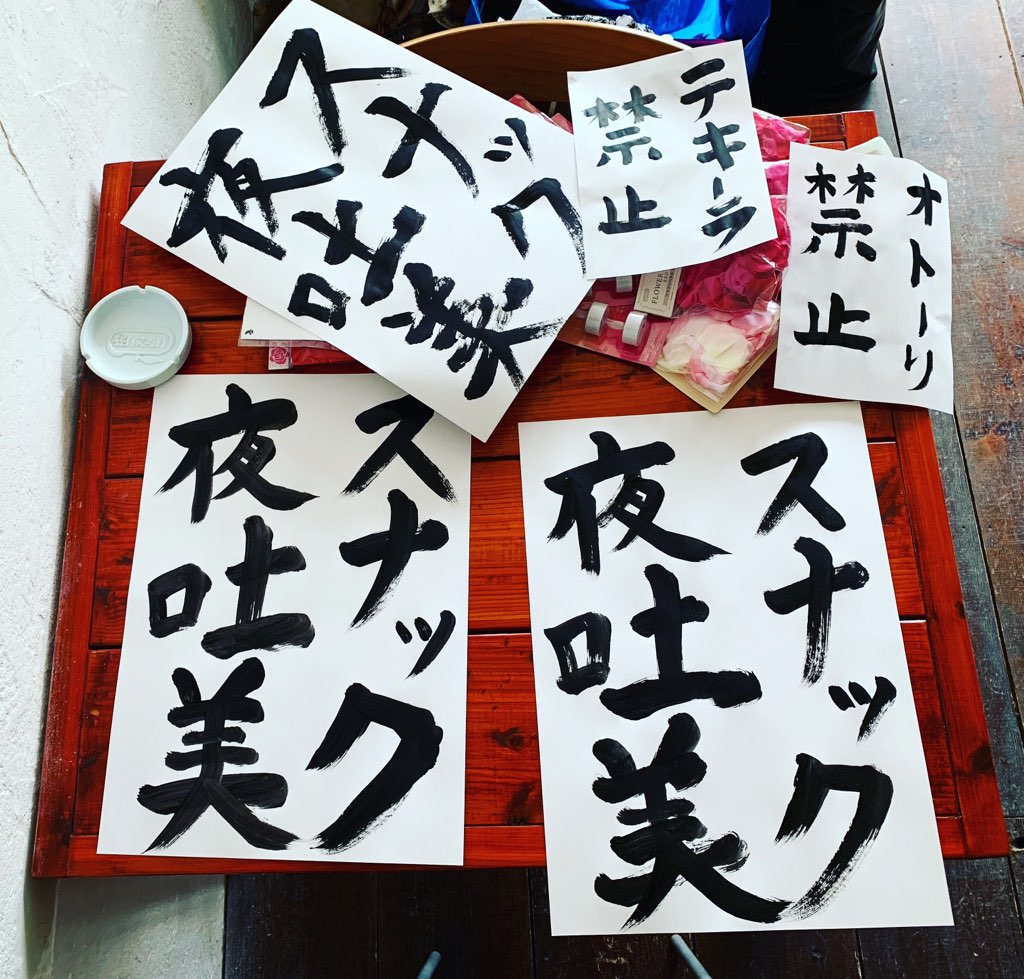 スナック
夜吐美
テキーラ
禁止
オトーリ
禁止
スナック
夜吐美
スナック
夜吐美
FLOWER